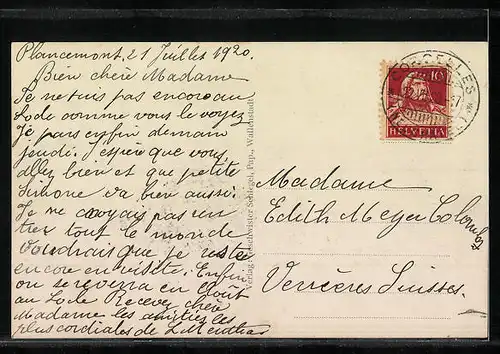 Plancemont, 21 Juillet 1920.
Bien chère Madame
Je ne suis pas encore au
Locle comme vous le voyez
Je pars enfin demain
jeudi. J'espère que vous
allez bien et que petite
Simone va bien aussi.
Je me croyais pas un
très tout le monde
voudrais que je reste
encore en visite. Enfin
on se reverra en Août
au Locle Recevez chère
Madame les amitiés les
plus cordiales de L.
Verlag Wallenstadt
CORCELLES
10
HELVETIA
Madame
Edith Meyer Colomb
Verrières Suisses.